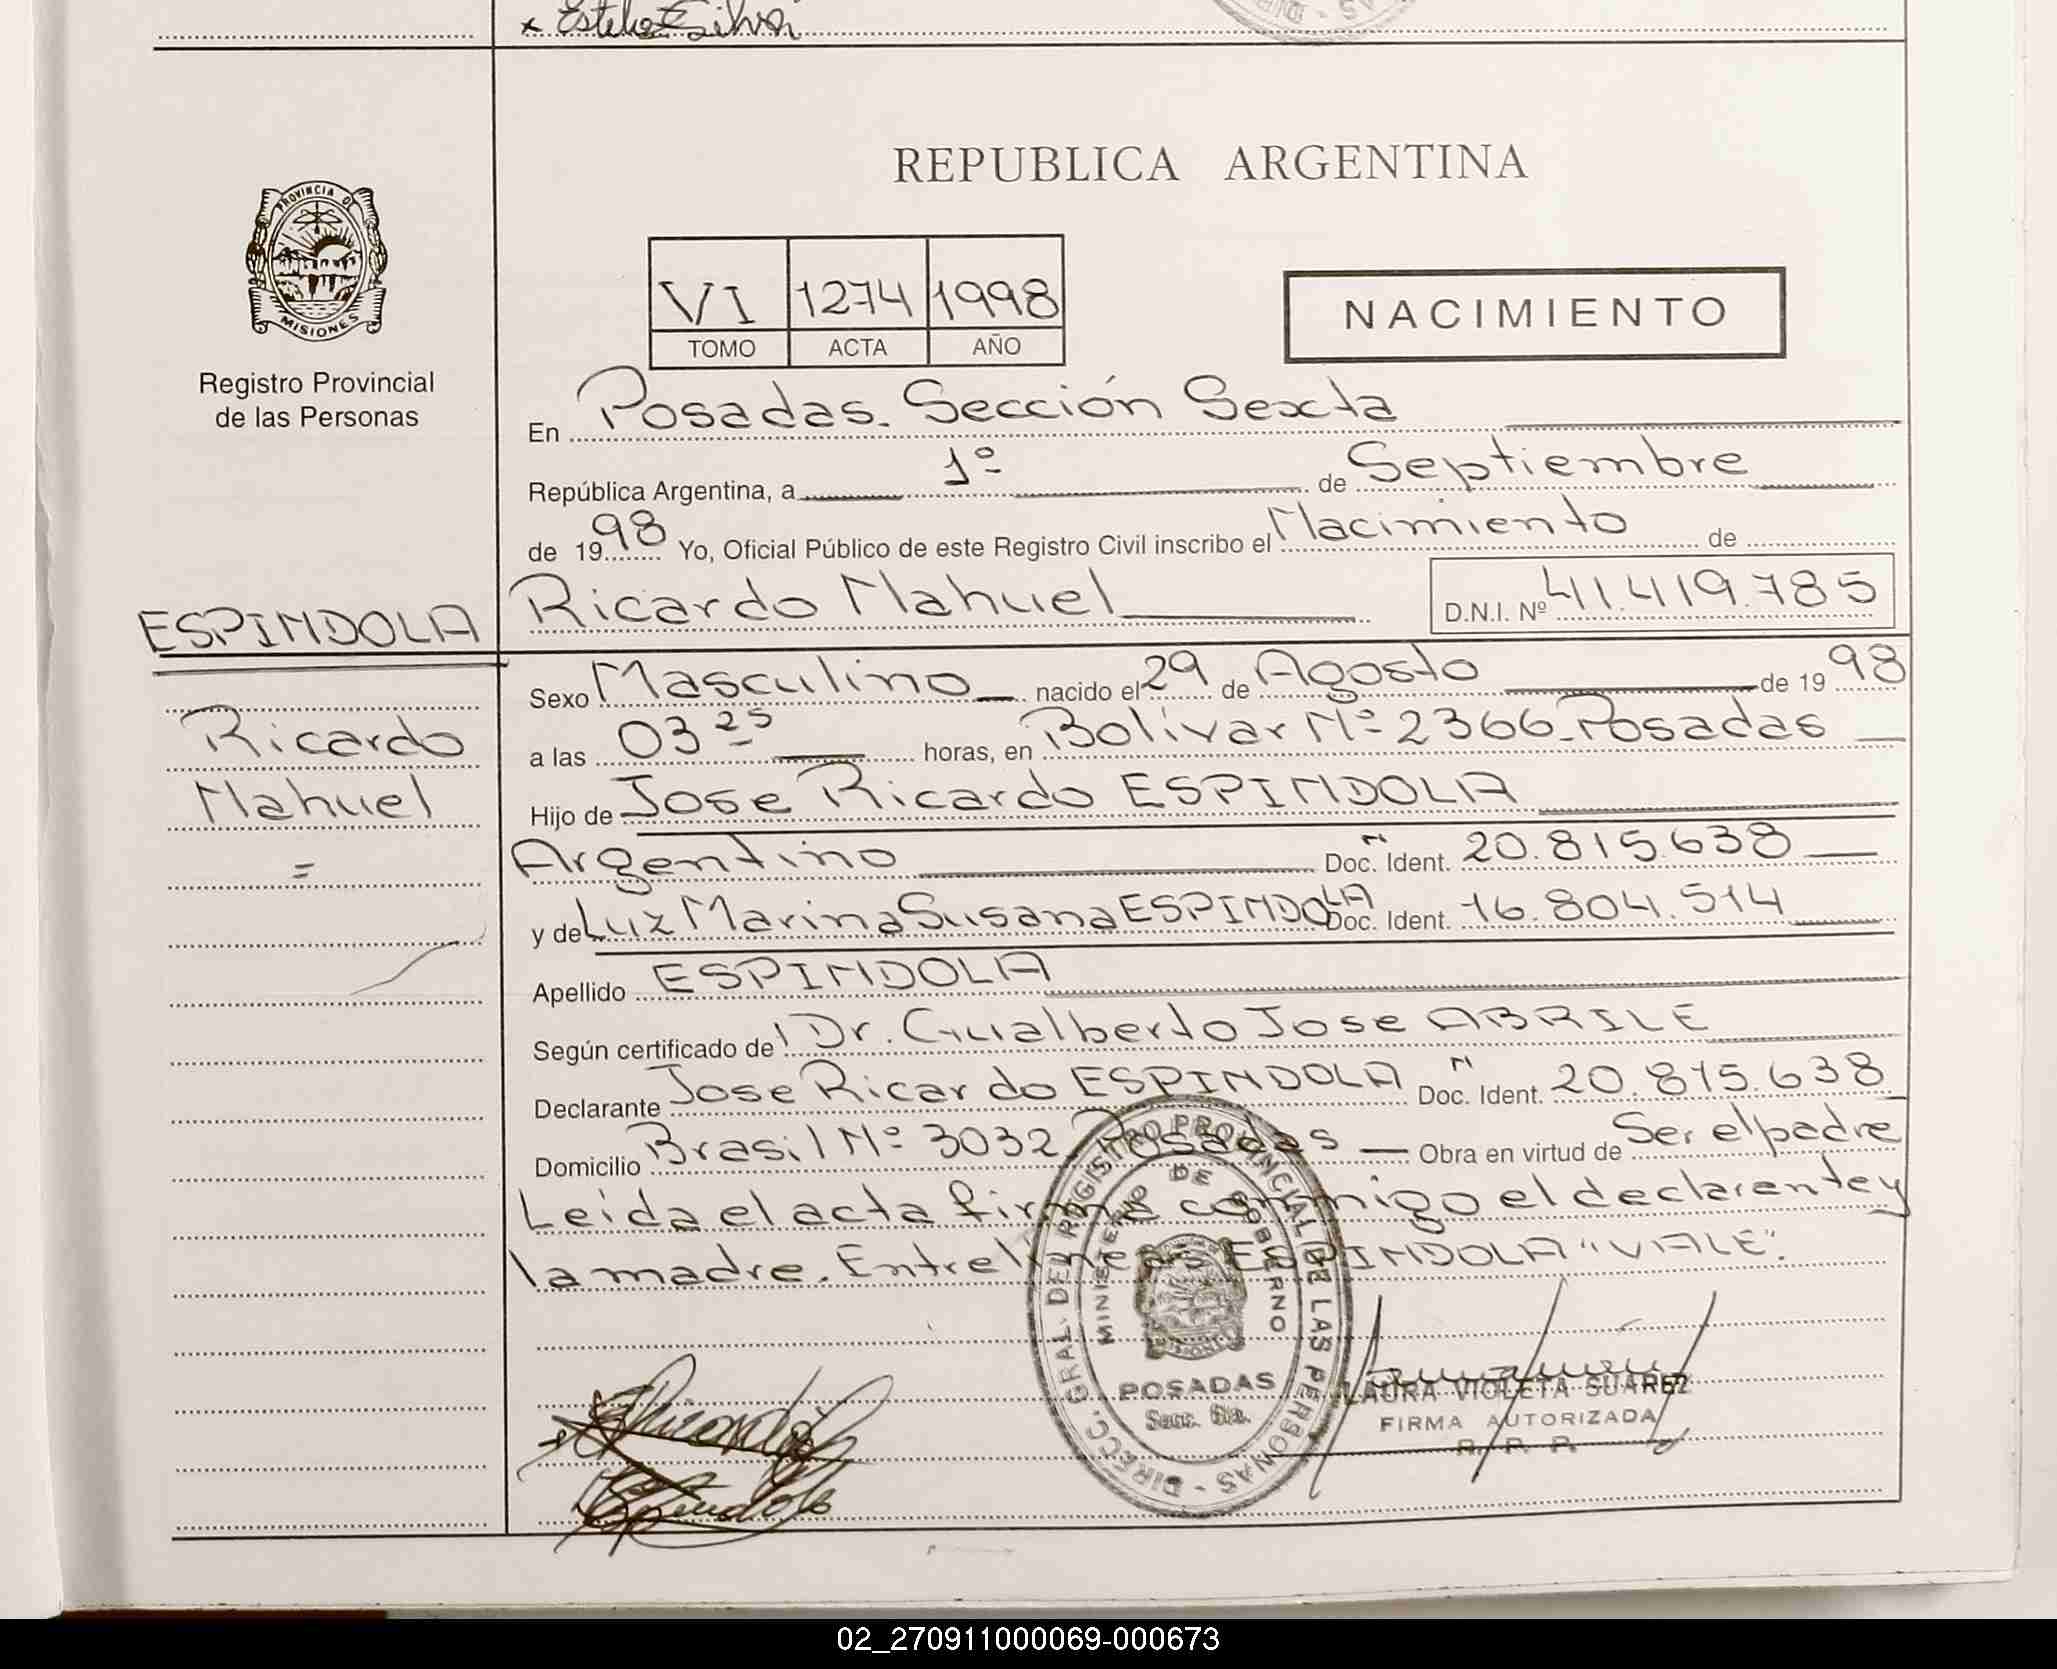 x Estela Silva
REPUBLICA ARGENTINA
PROVINCIA D
MISIONES
Registro Provincial
de las Personas
VI 1274 1998
TOMO ACTA AÑO
NACIMIENTO
En Posadas. Sección Sexta
República Argentina, a 1º de Septiembre
de 1998 Yo, Oficial Público de este Registro Civil inscribo el Nacimiento de
Ricardo Nahuel D.N.I. Nº 41.419.785
ESPINDOLA
Ricardo
Nahuel
=
Sexo Masculino nacido el 29 de Agosto de 1998
a las 03 25 horas, en Bolívar Nº 2366 Posadas
Hijo de Jose Ricardo ESPINDOLA
Argentino Doc. N Ident. 20.815.638
y de Luz Marina Susana ESPINDOLA Doc. Ident. 16.804.514
Apellido ESPINDOLA
Según certificado de l Dr. Gualberto Jose ABRILE
Declarante Jose Ricardo ESPINDOLA Doc. N Ident. 20.815.638
Domicilio Brasil Nº 3032 Posadas Obra en virtud de Ser el padre
Leida el acta firma conmigo el declarante y
la madre. Entrelineas ESPINDOLA "VALE".
DIRECC. GRAL. DEL REGISTRO PROVINCIAL DE LAS PERSONAS
MINISTERIO DE GOBIERNO
MISIONES
POSADAS
Secc. 6ta.
LAURA VIOLETA SUAREZ
FIRMA AUTORIZADA
R. P. P.
Espindola
02_270911000069-000673